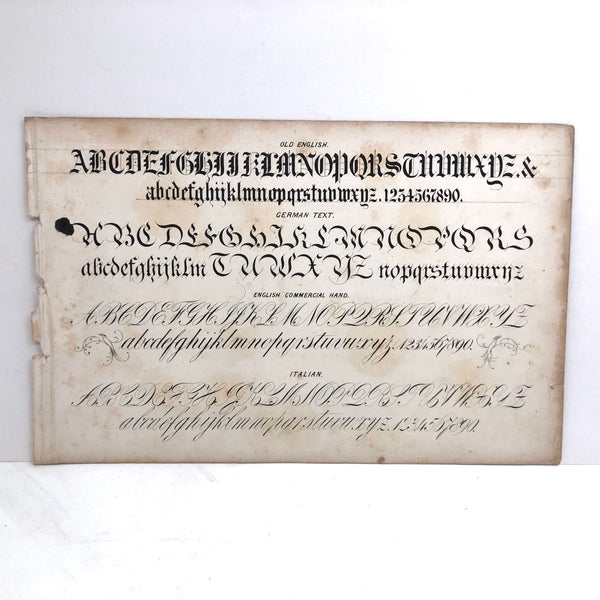 OLD ENGLISH.
ABCDEFGHIJKLMNOPQRSTUVWXYZ.&
abcdefghijklmnopqrstuvwxyz.1234567890.
GERMAN TEXT.
ABCDEFGHIKLMNOPQRS
abcdefghijklm TUWXYZ nopqrstuvwxyz
ENGLISH COMMERCIAL HAND.
ABCDEFGHIJKLMNOPQRSTUVWXYZ
abcdefghijklmnopqrstuvwxyz.1234567890.
ITALIAN.
ABCDEFGHIJKLMNOPQRSTUVWXYZ
abcdefghijklmnopqrstuvwxyz.1234567890.